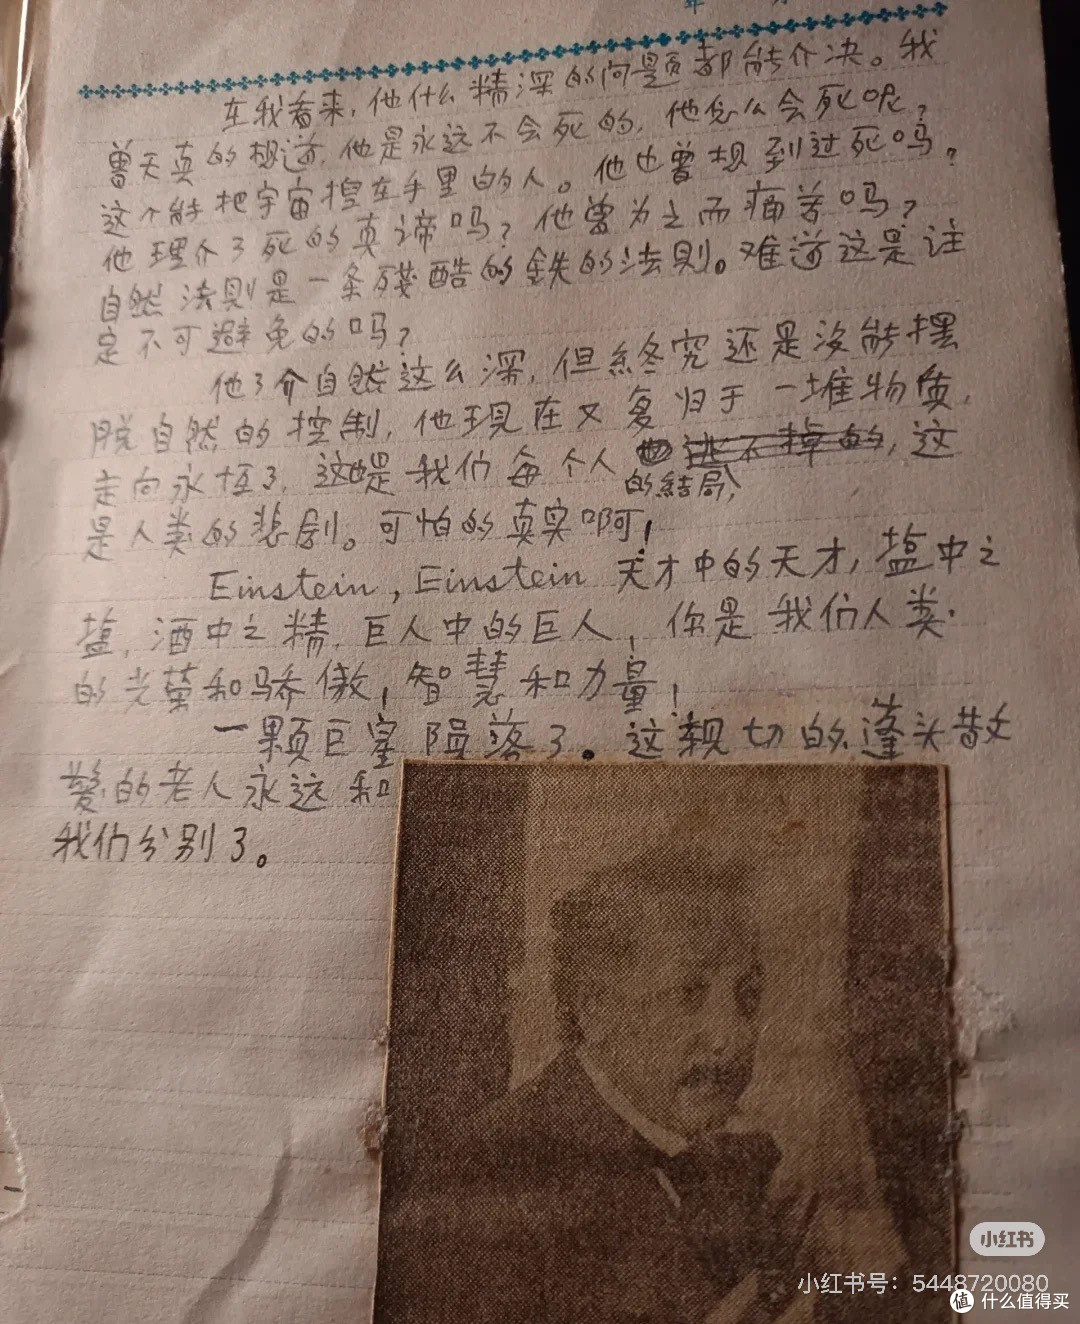 年 月
在我看来，他什么精深的问题都能介决。我
曾天真的想道，他是永远不会死的，他怎么会死呢？
这个能把宇宙控在手里的人。他也曾想到过死吗？
他理介了死的真谛吗？他曾为之而痛苦吗？
自然法则是一条残酷的鉄的法则。难道这是注
定不可避免的吗？
他了介自然这么深，但终究还是没能摆
脱自然的控制，他现在又复归于一堆物质，
走向永恒了，这也是我们每个人也逃不掉的，这
的结局，
是人类的悲剧。可怕的真实啊！
Einstein，Einstein 天才中的天才，盐中之
盐，酒中之精，巨人中的巨人，你是我们人类
的光荣和骄傲，智慧和力量！
一颗巨星陨落了。这亲切的蓬头散
髮的老人永远和
我们分别了。
小红书
小红书号：5448720080
值 什么值得买